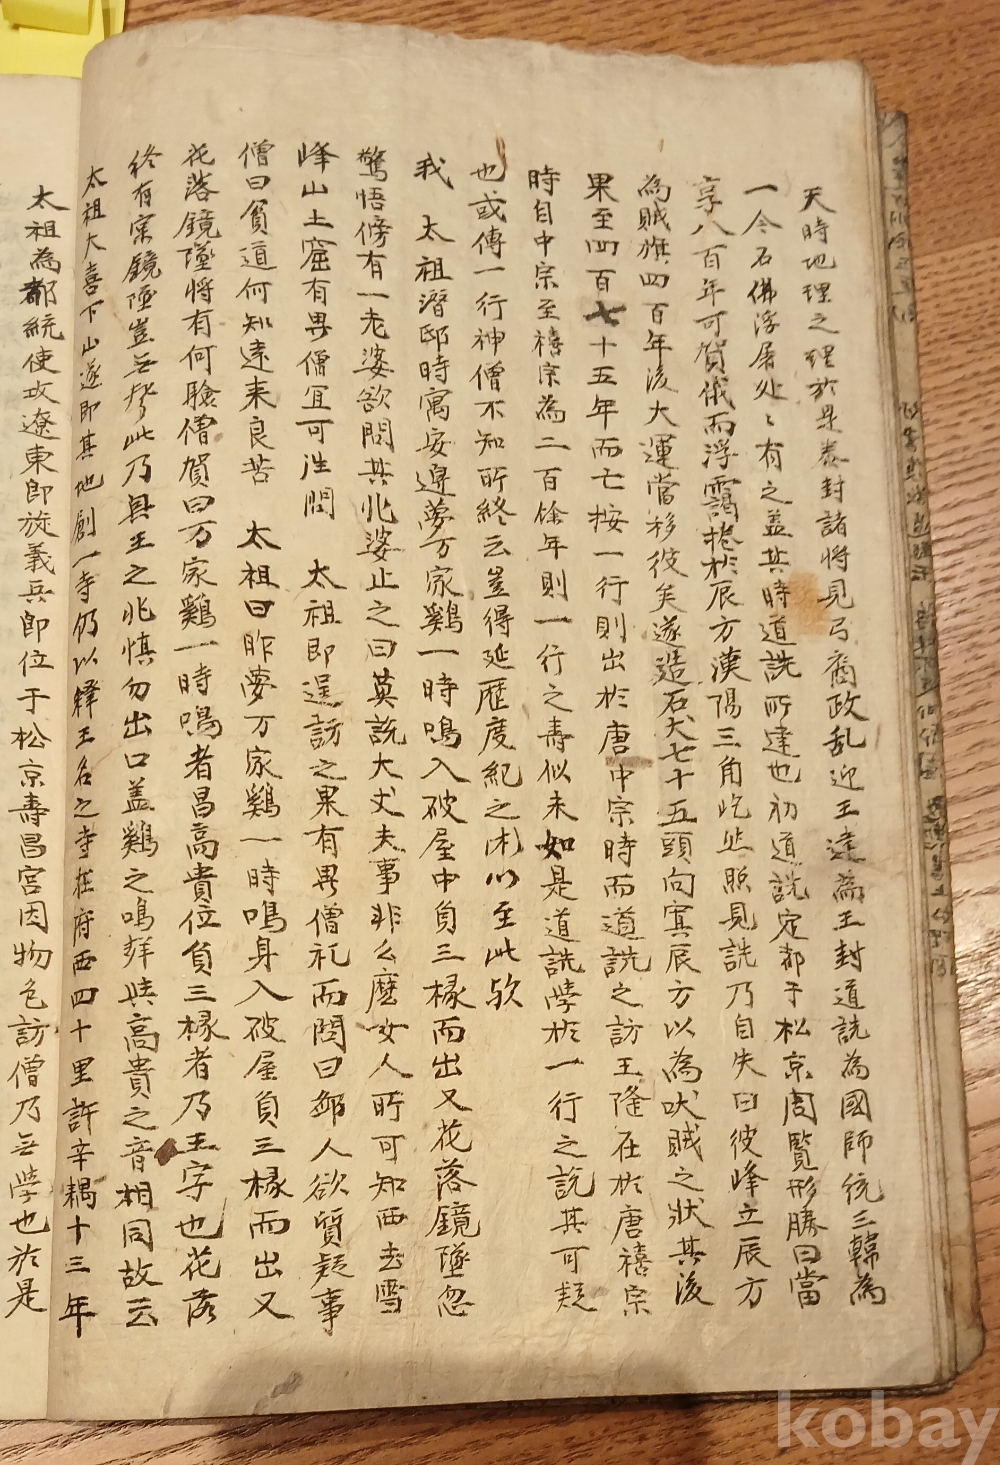 天時地理之理於是泰封諸將見弓裔政乱迎王建為王封道詵為國師統三韓為
一今石佛浮屠处〻有之盖其時道詵所建也初道詵定都于松京周覧形勝曰當
享八百年可賀俄而浮靄捲於辰方漢陽三角屹然照見詵乃自失曰彼峰立辰方
為賊旗四百年後大運當移彼矣遂造石犬七十五頭向寅辰方以為吠賊之狀其後
果至四百七十五年而亡按一行則出於唐中宗時而道詵之訪王隆在於唐禧宗
時自中宗至禧宗為二百餘年則一行之壽似未如是道詵學於一行之説其可疑
也或傳一行神僧不知所終云豈得延歴度紀之術以至此欤
我 太祖潛邸時寓安邊夢万家鷄一時鳴入破屋中負三椽而出又花落鏡墜忽
驚悟傍有一老婆欲問其兆婆止之曰莫說大丈夫事非么麼女人所可知西去雪
峰山土窟有異僧冝可徃問 太祖即逞訪之果有異僧礼而問曰鄙人欲質疑事
僧曰貧道何知遠来良苦 太祖曰昨夢万家鷄一時鳴身入破屋負三椽而出又
花落鏡墜将有何驗僧賀曰万家鷄一時鳴者昌高貴位負三椽者乃王字也花落
終有宲鏡墜豈無聲此乃興王之兆慎勿出口盖鷄之鳴聲與高貴之音相同故云
太祖大喜下山遂即其地創一寺仍以釋王名之寺在府西四十里許辛耦十三年
太祖為都統使攻遼東即旋義兵即位于松京壽昌宮因物色訪僧乃無學也於是
kobay